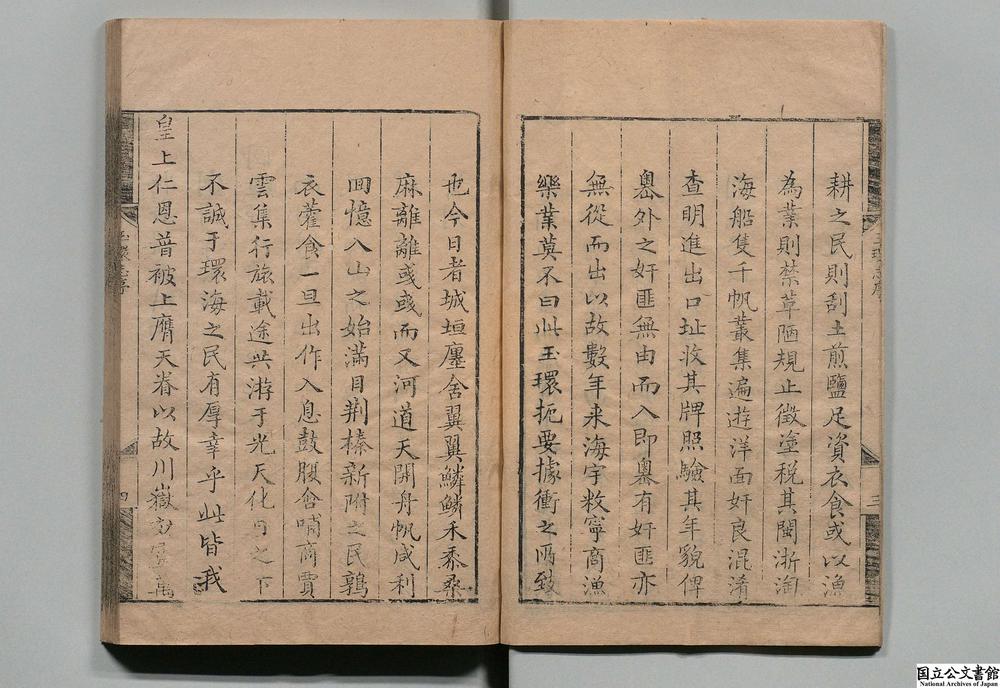 耕之民則刮土煎鹽足資衣食或以漁
為業則禁草陋規止徵塗税其閩浙淘
海船隻千帆叢集遍遊洋面奸良混淆
查明進出口址收其牌照驗其年貌俾
嶴外之奸匪無由而入即嶴有奸匪亦
無從而出以故數年来海宇敉寧商漁
樂業莫不曰此玉環扼要據衝之所致
也今日者城垣廛舍翼翼鱗鱗禾黍桑
麻離離彧彧而又河道天開舟帆咸利
回憶入山之始滿目荆榛新附之民鶉
衣藿食一旦出作入息鼓腹含哺商賈
雲集行旅載途共游于光天化日之下
不誠于環海之民有厚幸乎此皆我
皇上仁恩普被上膺天眷以故川嶽效靈萬
三
四
国立公文書館
National Archives of Japan